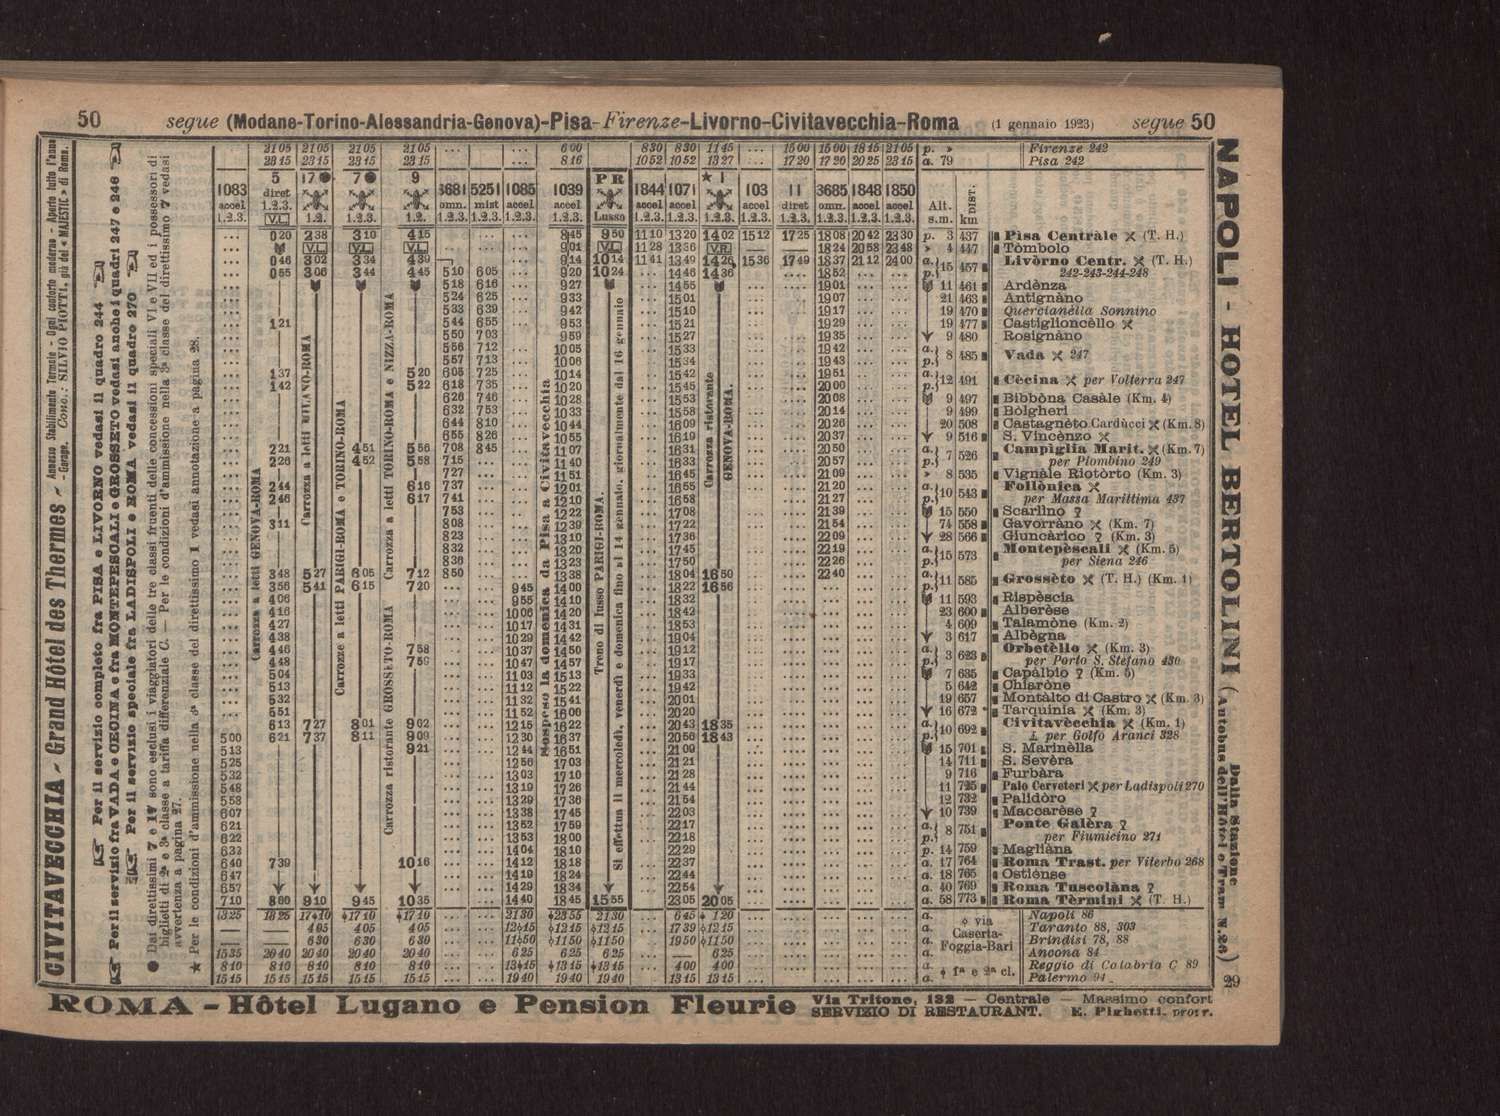 50 segue (Modane-Torino-Alessandria-Genova)-Pisa-Firenze-Livorno-Civitavecchia-Roma (1 gennaio 1923) segue 50
2105 2105 2105 2105 ... ... ... 600 830 830 1145 ... 1500 1500 1815 2105 p. » Firenze 242
2315 2315 2315 2315 ... ... ... 816 1052 1052 1327 ... 1720 1720 2025 2315 a. 79 Pisa 242
5 17● 7● 9 PR ★1
1083 diret 3681 5251 1085 1039 1844 1071 103 11 3685 1848 1850
accel 1.2.3. omn. mist accel accel accel accel accel diret omn. accel accel Alt. DIST.
1.2.3. V.L. 1.2. 1.2.3. 1.2. 1.2.3. 1.2.3. 1.2.3. 1.2.3. Lusso 1.2.3. 1.2.3. 1.2.3. 1.2.3. 1.2.3. 1.2.3. 1.2.3. 1.2.3. s.m. km
... 020 238 310 415 ... ... ... 845 950 1110 1320 1402 1512 1725 1808 2042 2330 p. 3 437 Pisa Centràle (T. H.)
... V.L. V.L. V.L. ... ... ... 901 V.L. 1128 1336 V.R. — — 1824 2058 2348 » 4 447 Tòmbolo
... 046 302 334 439 ... ... ... 914 1014 1141 1349 1426 1536 1749 1837 2112 2400 a. 15 457 Livòrno Centr. (T. H.)
... 055 306 344 445 510 605 ... 920 1024 ... 1446 1436 ... ... 1852 ... ... p. 242-243-244-248
518 616 ... 927 1455 1901 11 461 Ardènza
524 625 ... 933 1501 1907 21 463 Antignàno
533 639 ... 942 1510 1917 19 470 Quercianèlla Sonnino
121 544 655 ... 953 1521 1929 19 477 Castiglioncèllo
550 703 ... 959 1527 1935 9 480 Rosignàno
556 712 ... 1005 1533 1942 a. 8 485 Vada 247
557 713 ... 1006 1534 1943 p.
137 520 605 725 ... 1014 1542 1951 a. 12 491 Cècina per Volterra 247
142 522 618 735 ... 1020 1545 2000 p.
626 746 ... 1028 1553 2008 9 497 Bibbòna Casàle (Km. 4)
632 753 ... 1033 1558 2014 9 499 Bòlgheri
644 810 ... 1044 1609 2026 20 508 Castagnèto Cardùcci (Km. 8)
655 826 ... 1055 1619 2037 9 516 S. Vincènzo
221 451 556 708 845 ... 1107 1631 2050 a. 7 526 Campiglia Marit. (Km. 7)
226 452 558 715 ... 1140 1633 2057 p. per Piombino 249
727 ... 1151 1645 2109 » 8 535 Vignàle Riotòrto (Km. 3)
244 616 737 ... 1201 1655 2120 a. 10 543 Follònica
246 617 741 ... 1210 1658 2127 p. per Massa Marittima 437
753 ... 1222 1708 2139 15 550 Scarlìno
311 808 ... 1239 1722 2154 74 558 Gavorràno (Km. 7)
823 ... 1310 1736 2209 28 566 Giuncàrico (Km. 3)
832 ... 1320 1745 2219 a. 15 573 Montepèscali (Km. 5)
836 ... 1323 1750 2226 p. per Siena 246
348 527 605 712 850 ... 1338 1804 1650 2240 a. 11 585 Grossèto (T. H.) (Km. 1)
356 541 615 720 945 1400 1822 1656 p.
406 955 1410 1832 11 593 Rispèscia
416 1006 1420 1842 23 600 Alberèse
427 1017 1431 1853 4 609 Talamòne (Km. 2)
438 1029 1442 1904 3 617 Albègna
446 758 1037 1450 1912 a. 3 623 Orbetèllo (Km. 3)
448 759 1047 1457 1917 p. per Porto S. Stefano 430
504 1103 1513 1933 7 635 Capàlbio (Km. 5)
513 1112 1522 1942 5 642 Chiaròne
532 1132 1541 2001 19 657 Montàlto di Castro (Km. 3)
551 1152 1600 2020 16 672 Tarquinia (Km. 3)
613 727 801 902 1215 1622 2043 1835 a. 10 692 Civitavècchia (Km. 1)
500 621 737 811 909 1230 1637 2056 1843 p. per Golfo Aranci 328
513 921 1244 1651 2109 15 701 S. Marinèlla
525 1256 1703 2121 14 711 S. Sevèra
532 1303 1710 2128 9 716 Furbàra
548 1319 1726 2144 11 725 Palo Cerveteri per Ladispoli 270
558 1329 1736 2154 12 732 Palidòro
607 1338 1745 2203 10 739 Maccarèse
621 1352 1759 2217 a. 8 751 Ponte Galèra
622 1353 1800 2218 p. per Fiumicino 271
632 1404 1810 2229 p. 14 759 Magliàna
640 739 1016 1412 1818 2237 a. 17 764 Roma Trast. per Viterbo 268
647 1419 1824 2244 a. 18 765 Ostiènse
657 1429 1834 2254 a. 40 769 Roma Tuscolàna
710 800 910 945 1035 1440 1845 1555 2305 2005 a. 58 773 Roma Tèrmini (T. H.)
1325 1325 1710 1710 1710 2130 2355 2130 645 120 a. Napoli 86
— — 405 405 405 1215 1215 1215 1739 1215 a. Taranto 88, 303
— — 630 630 630 1150 1150 1150 1950 1150 a. Brindisi 78, 88
1535 2040 2040 2040 2040 625 625 625 — 625 a. Ancona 84
810 810 810 810 810 1315 1315 1315 400 400 a. Reggio di Calabria C 89
1515 1515 1515 1515 1515 1940 1940 1940 1315 1315 a. Palermo 94
via Caserta-Foggia-Bari
1ª e 2ª cl.
Carrozza a letti GENOVA-ROMA
Carrozza a letti MILANO-ROMA
Carrozze a letti PARIGI-ROMA e TORINO-ROMA
Carrozza a letti TORINO-ROMA e NIZZA-ROMA
Carrozza ristorante GROSSETO-ROMA
Sospeso la domenica da Pisa a Civitavecchia
Treno di lusso PARIGI-ROMA.
Si effettua il mercoledì, venerdì e domenica fino al 14 gennaio, giornalmente dal 16 gennaio
Carrozza ristorante
GENOVA-ROMA.
CIVITAVECCHIA - Grand Hôtel des Thermes - Annesso Stabilimento Termale - Ogni conforto moderno - Aperto tutto l'anno
-Garage. Conc.: SILVIO PIOTTI, già del «MAJESTIC» di Roma.
Per il servizio completo fra PISA e LIVORNO vedasi il quadro 244
Per il servizio fra VADA e CECINA e fra MONTEPESCALI e GROSSETO vedasi anche i quadri 247 e 248
Per il servizio speciale fra LADISPOLI e ROMA vedasi il quadro 270
● Dai direttissimi 7 e 17 sono esclusi i viaggiatori delle tre classi fruenti delle concessioni speciali VI e VII ed i possessori di
biglietti di 2ª e 3ª classe a tariffa differenziale C. — Per le condizioni d'ammissione nella 3ª classe del direttissimo 7 vedasi
avvertenza a pagina 27.
★ Per le condizioni d'ammissione nella 3ª classe del direttissimo 1 vedasi annotazione a pagina 28.
NAPOLI - HOTEL BERTOLINI (Dalla Stazione
Autobus dell'Hôtel e Tram N. 26)
29
ROMA - Hôtel Lugano e Pension Fleurie Via Tritone, 132 — Centrale — Massimo confort
SERVIZIO DI RESTAURANT. E. Pighetti, propr.